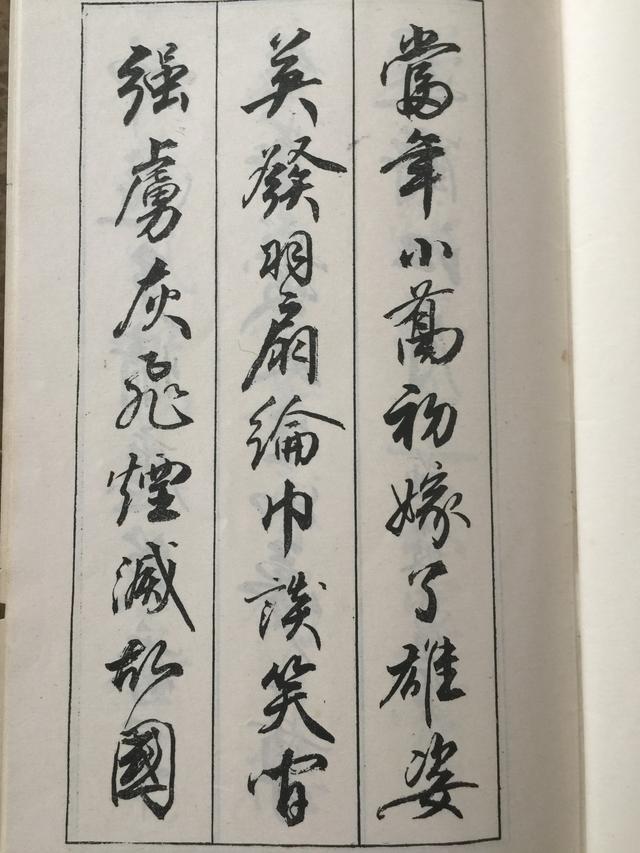 當年小蕎初嫁了雄姿
英發羽扇綸巾談笑間
强虜灰飛煙滅故國